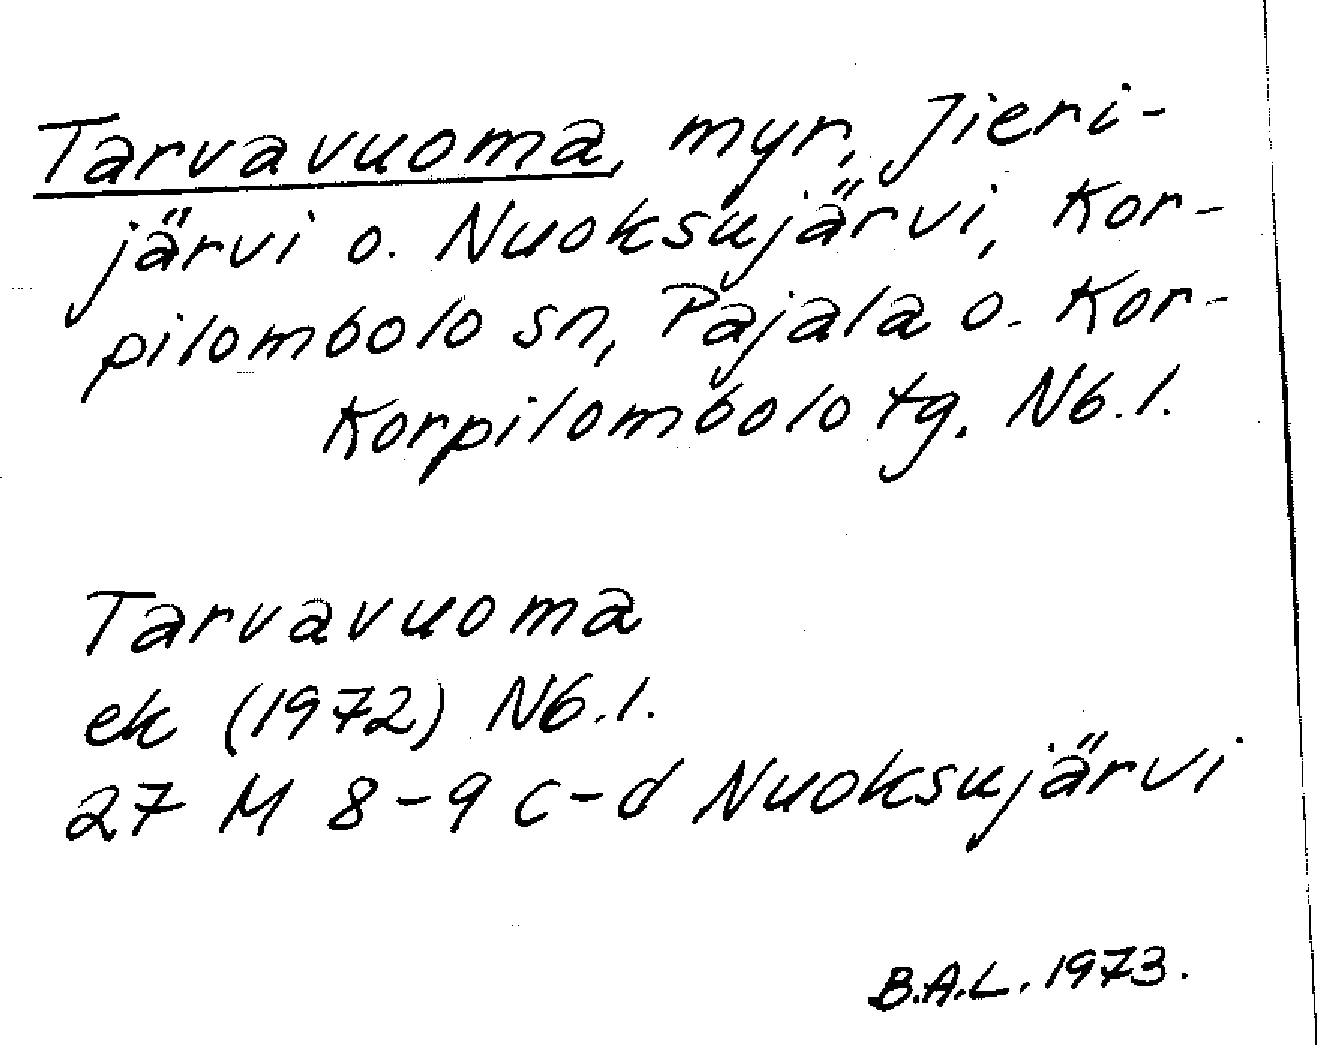 Tarvavuoma, myr, Jieri-
järvi o. Nuoksujärvi, Kor-
pilombolo sn, Pajala o. Kor-
Korpilombolo tg. Nb.l.
Tarvavuoma
ek (1972) Nb.l.
27 M 8-9 c-d Nuoksujärvi
B.A.L. 1973.